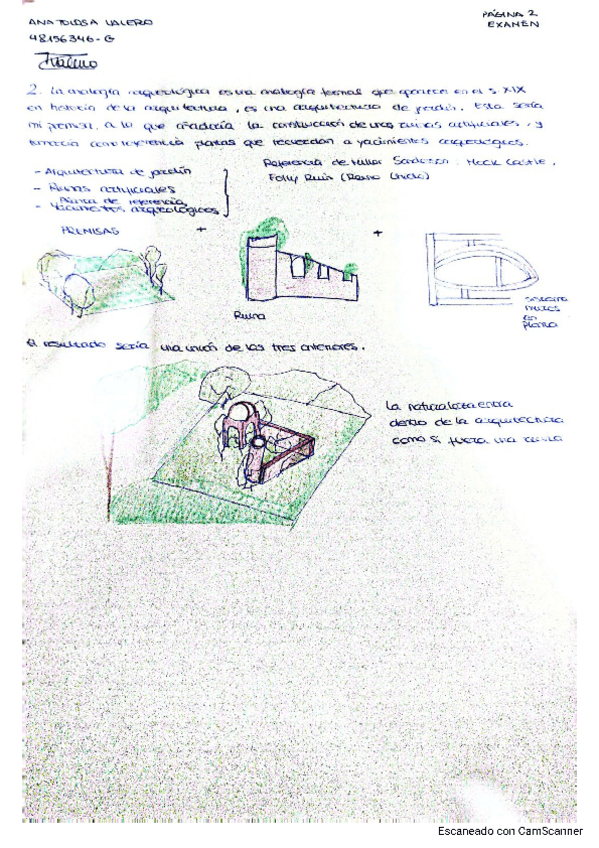 ANA TOLOSA VALERO
48156346-G
PÁGINA 2
EXAMEN
Valero
2. La analogía arqueológica es una analogía formal que aparece en el s. XIX
en historia de la arquitectura, es una arquitectura de jardín. Esta sería
mi premisa, a lo que añadiría la construcción de unas ruinas artificiales, y
tomaría como referencia plantas que recuerdan a yacimientos arqueológicos.
- Arquitectura de jardín
- Ruinas artificiales
- Planta de referencia
yacimientos arqueológicos
Referencia de Sanderson Mock Castle,
Folly Ruin (Reino Unido)
PREMISAS
+
+
Ruina
muros
en
planta
El resultado sería una unión de las tres anteriores.
La naturaleza entra
dentro de la arquitectura
como si fuera una ruina
Escaneado con CamScanner